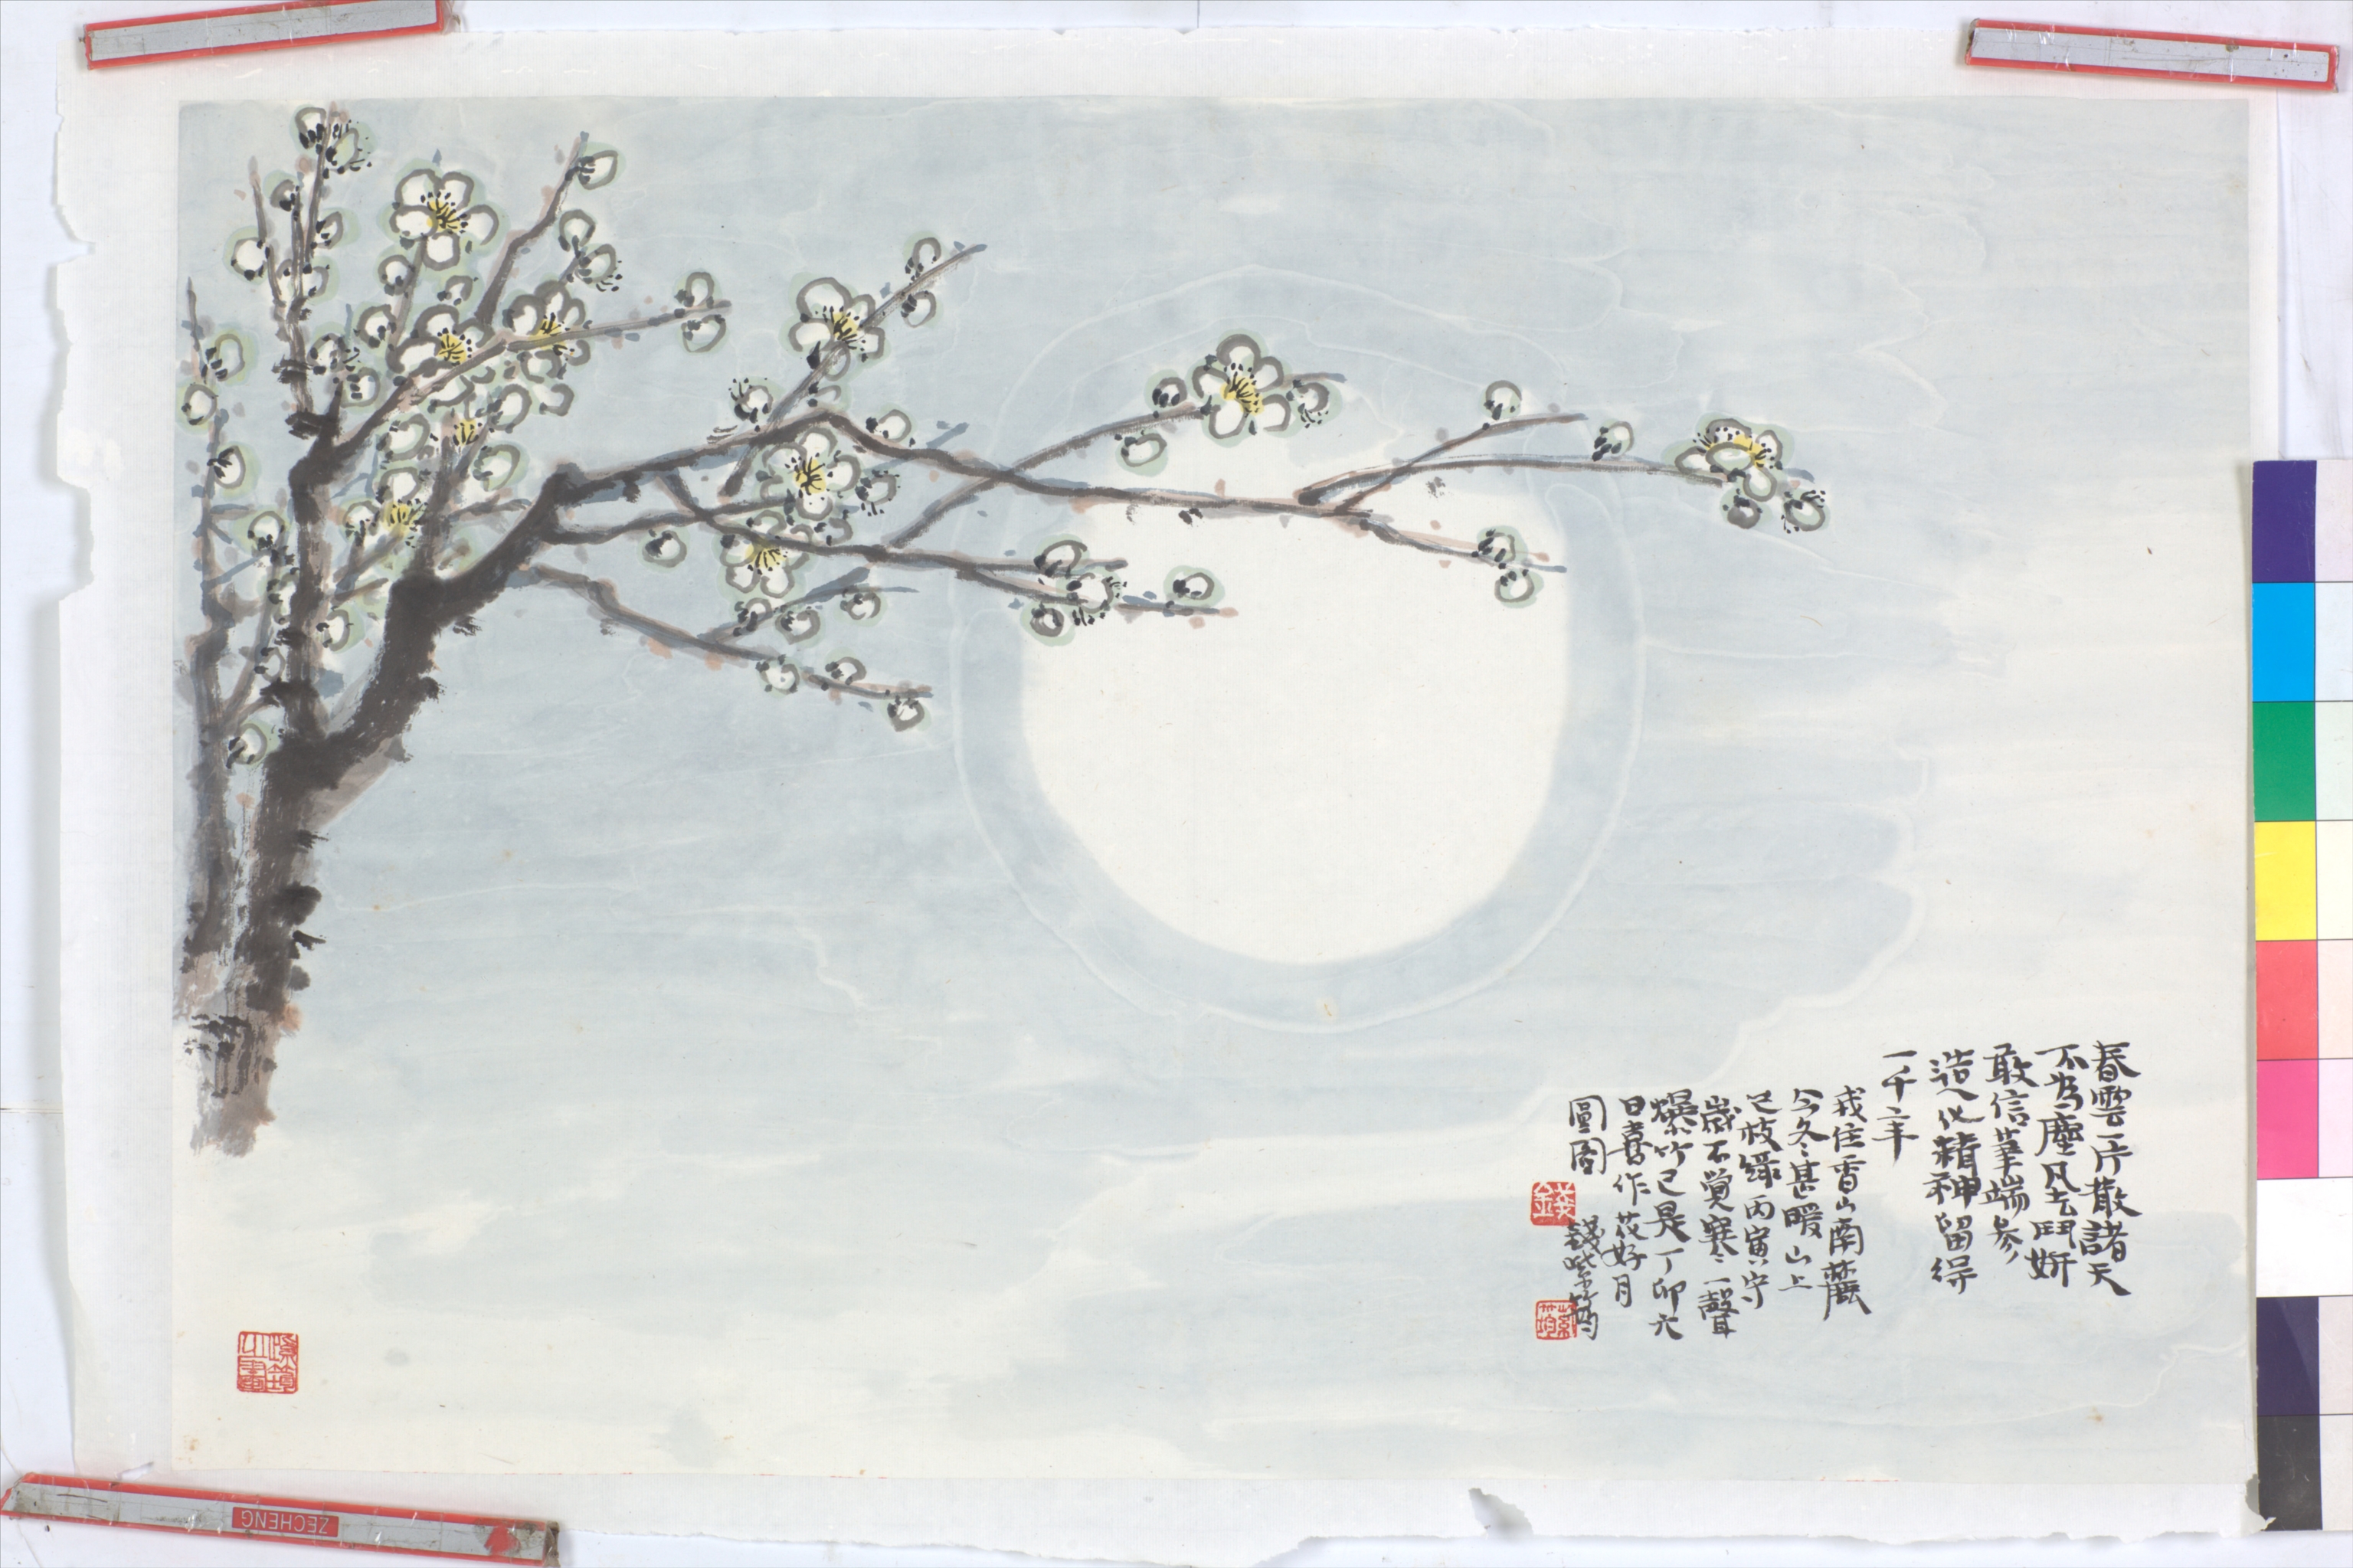 春雲一片散諸天
不為塵凡去鬪妍
敢信筆端參
造化精神留得
一千年
我住香山南麓
今冬甚暖山上
已枝綠丙寅守
歲不覺寒一聲
爆竹已是丁卯六
日喜作花好月
圓圖
錢紫筠
錢
紫筠
ZECHENG